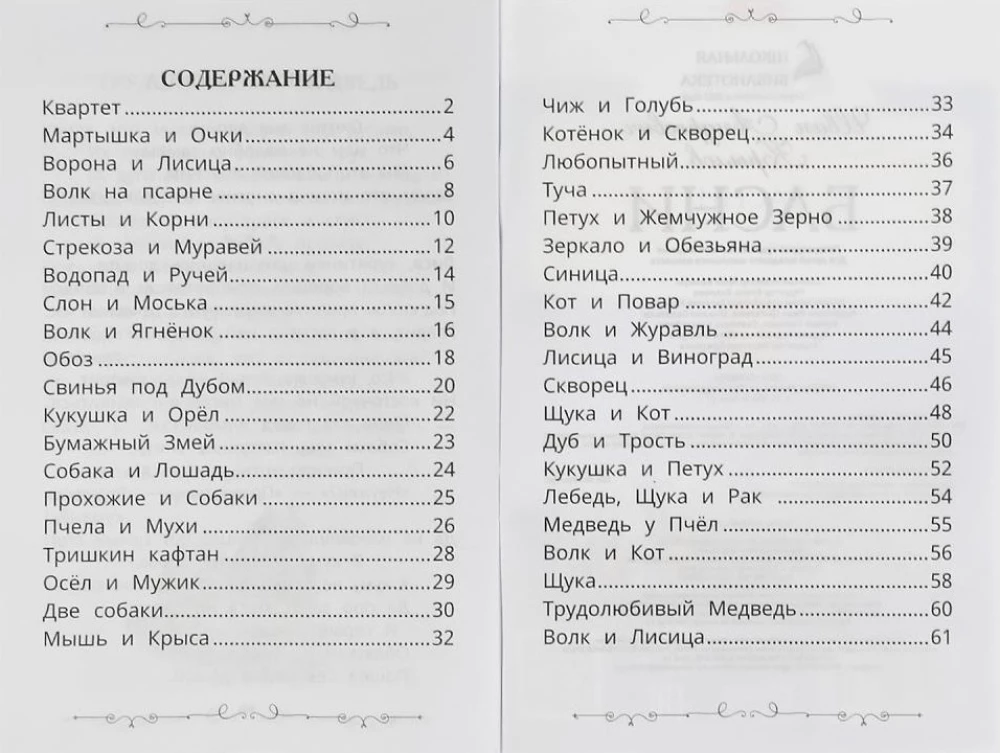 СОДЕРЖАНИЕ
Квартет ........ 2
Мартышка и Очки ........ 4
Ворона и Лисица ........ 6
Волк на псарне ........ 8
Листы и Корни ........ 10
Стрекоза и Муравей ........ 12
Водопад и Ручей ........ 14
Слон и Моська ........ 15
Волк и Ягнёнок ........ 16
Обоз ........ 18
Свинья под Дубом ........ 20
Кукушка и Орёл ........ 22
Бумажный Змей ........ 23
Собака и Лошадь ........ 24
Прохожие и Собаки ........ 25
Пчела и Мухи ........ 26
Тришкин кафтан ........ 28
Осёл и Мужик ........ 29
Две собаки ........ 30
Мышь и Крыса ........ 32
Чиж и Голубь ........ 33
Котёнок и Скворец ........ 34
Любопытный ........ 36
Туча ........ 37
Петух и Жемчужное Зерно ........ 38
Зеркало и Обезьяна ........ 39
Синица ........ 40
Кот и Повар ........ 42
Волк и Журавль ........ 44
Лисица и Виноград ........ 45
Скворец ........ 46
Щука и Кот ........ 48
Дуб и Трость ........ 50
Кукушка и Петух ........ 52
Лебедь, Щука и Рак ........ 54
Медведь у Пчёл ........ 55
Волк и Кот ........ 56
Щука ........ 58
Трудолюбивый Медведь ........ 60
Волк и Лисица ........ 61